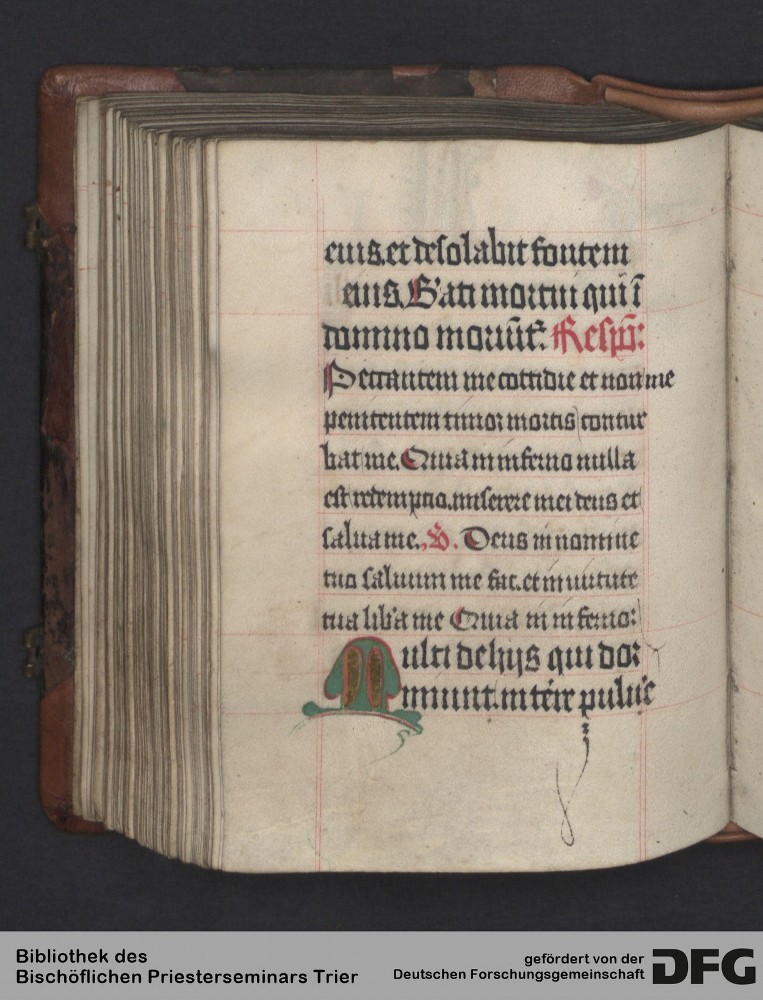 eius. et desolabit fontem
eius. B'ati mortui qui ī
domino moriūt'. Respō:
Peccantem me cottidie et non me
penitentem timor mortis contur
bat me. Quia in inferno nulla
est redemptio. miserere mei deus et
salua me. V. Deus in nomine
tuo saluum me fac. et in uirtute
tua lib'a me Quia in inferno:
Multi de hijs qui dor
miunt. in terre pulu'e
Bibliothek des
Bischöflichen Priesterseminars Trier
gefördert von der
Deutschen Forschungsgemeinschaft
DFG